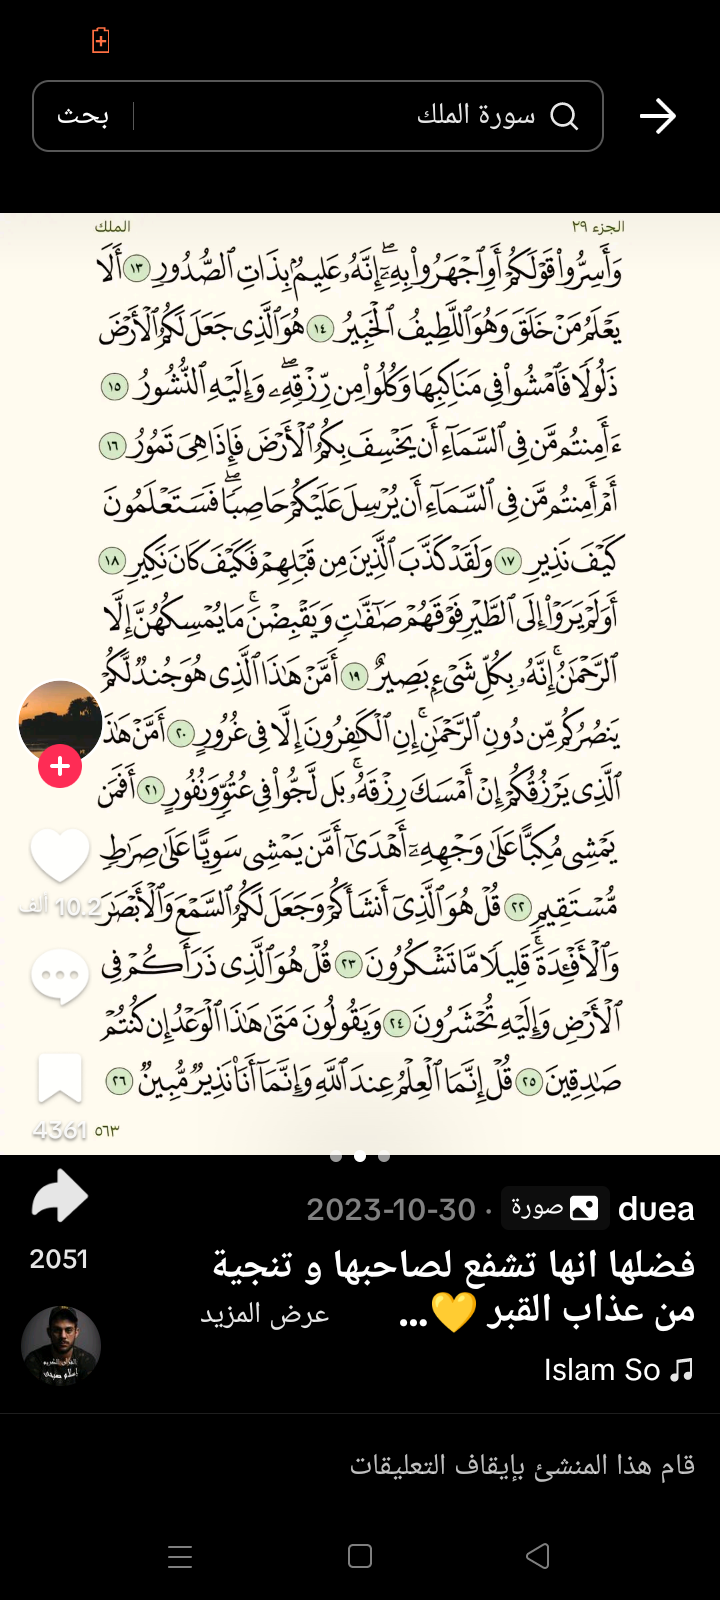 سورة الملك
بحث
الجزء ٢٩
الملك
وَأَسِرُّوا۟ قَوْلَكُمْ أَوِ ٱجْهَرُوا۟ بِهِۦٓ ۖ إِنَّهُۥ عَلِيمٌۢ بِذَاتِ ٱلصُّدُورِ ١٣ أَلَا
يَعْلَمُ مَنْ خَلَقَ وَهُوَ ٱللَّطِيفُ ٱلْخَبِيرُ ١٤ هُوَ ٱلَّذِى جَعَلَ لَكُمُ ٱلْأَرْضَ
ذَلُولًا فَٱمْشُوا۟ فِى مَنَاكِبِهَا وَكُلُوا۟ مِن رِّزْقِهِۦ ۖ وَإِلَيْهِ ٱلنُّشُورُ ١٥
ءَأَمِنتُم مَّن فِى ٱلسَّمَآءِ أَن يَخْسِفَ بِكُمُ ٱلْأَرْضَ فَإِذَا هِىَ تَمُورُ ١٦
أَمْ أَمِنتُم مَّن فِى ٱلسَّمَآءِ أَن يُرْسِلَ عَلَيْكُمْ حَاصِبًا ۖ فَسَتَعْلَمُونَ
كَيْفَ نَذِيرِ ١٧ وَلَقَدْ كَذَّبَ ٱلَّذِينَ مِن قَبْلِهِمْ فَكَيْفَ كَانَ نَكِيرِ ١٨
أَوَلَمْ يَرَوْا۟ إِلَى ٱلطَّيْرِ فَوْقَهُمْ صَـٰٓفَّـٰتٍ وَيَقْبِضْنَ ۚ مَا يُمْسِكُهُنَّ إِلَّا
ٱلرَّحْمَـٰنُ ۚ إِنَّهُۥ بِكُلِّ شَىْءٍۭ بَصِيرٌ ١٩ أَمَّنْ هَـٰذَا ٱلَّذِى هُوَ جُندٌ لَّكُمْ
يَنصُرُكُم مِّن دُونِ ٱلرَّحْمَـٰنِ ۚ إِنِ ٱلْكَـٰفِرُونَ إِلَّا فِى غُرُورٍ ٢٠ أَمَّنْ هَـٰذَا
ٱلَّذِى يَرْزُقُكُمْ إِنْ أَمْسَكَ رِزْقَهُۥ ۚ بَل لَّجُّوا۟ فِى عُتُوٍّ وَنُفُورٍ ٢١ أَفَمَن
يَمْشِى مُكِبًّا عَلَىٰ وَجْهِهِۦٓ أَهْدَىٰٓ أَمَّن يَمْشِى سَوِيًّا عَلَىٰ صِرَٰطٍ
مُّسْتَقِيمٍ ٢٢ قُلْ هُوَ ٱلَّذِىٓ أَنشَأَكُمْ وَجَعَلَ لَكُمُ ٱلسَّمْعَ وَٱلْأَبْصَـٰرَ
وَٱلْأَفْـِٔدَةَ ۖ قَلِيلًا مَّا تَشْكُرُونَ ٢٣ قُلْ هُوَ ٱلَّذِى ذَرَأَكُمْ فِى
ٱلْأَرْضِ وَإِلَيْهِ تُحْشَرُونَ ٢٤ وَيَقُولُونَ مَتَىٰ هَـٰذَا ٱلْوَعْدُ إِن كُنتُمْ
صَـٰدِقِينَ ٢٥ قُلْ إِنَّمَا ٱلْعِلْمُ عِندَ ٱللَّهِ وَإِنَّمَآ أَنَا۠ نَذِيرٌ مُّبِينٌ ٢٦
٥٦٣
10.2 ألف
4361
2051
duea صورة · 2023-10-30
فضلها انها تشفع لصاحبها و تنجية
من عذاب القبر 💛... عرض المزيد
Islam So
قام هذا المنشئ بإيقاف التعليقات